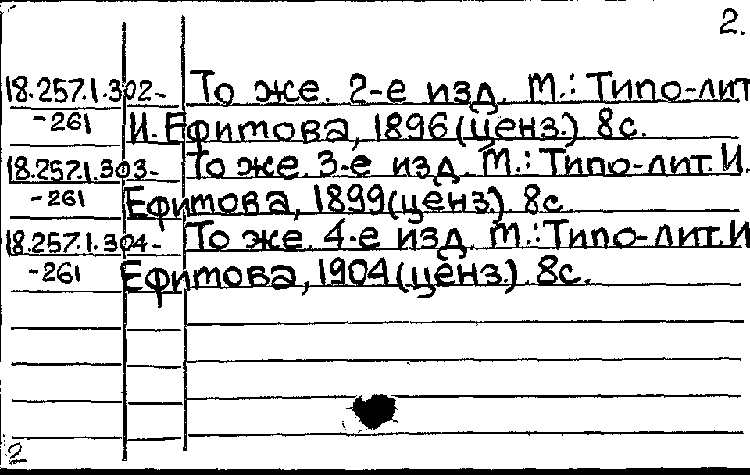 2.
18.257.1.302- То же. 2-е изд. М.: Типо-лит
-261 И. Ефитова, 1896 (ценз.) 8с.
18.257.1.303- То же. 3-е изд. М.: Типо-лит. И.
-261 Ефитова, 1899 (ценз.) 8с
18.257.1.304- То же. 4-е изд. М.: Типо-лит. И
-261 Ефитова, 1904 (ценз.) 8с.
2